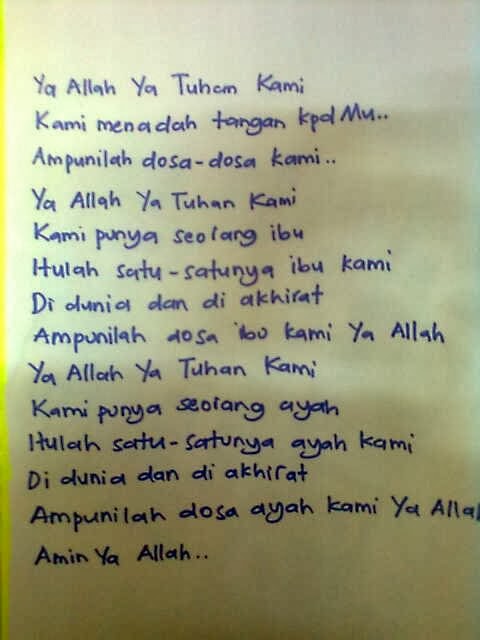 Ya Allah Ya Tuhan Kami
Kami menadah tangan kpd Mu..
Ampunilah dosa-dosa kami..
Ya Allah Ya Tuhan Kami
Kami punya seorang ibu
Itulah satu-satunya ibu kami
Di dunia dan di akhirat
Ampunilah dosa ibu kami Ya Allah
Ya Allah Ya Tuhan Kami
Kami punya seorang ayah
Itulah satu-satunya ayah kami
Di dunia dan di akhirat
Ampunilah dosa ayah kami Ya Allah
Amin Ya Allah..